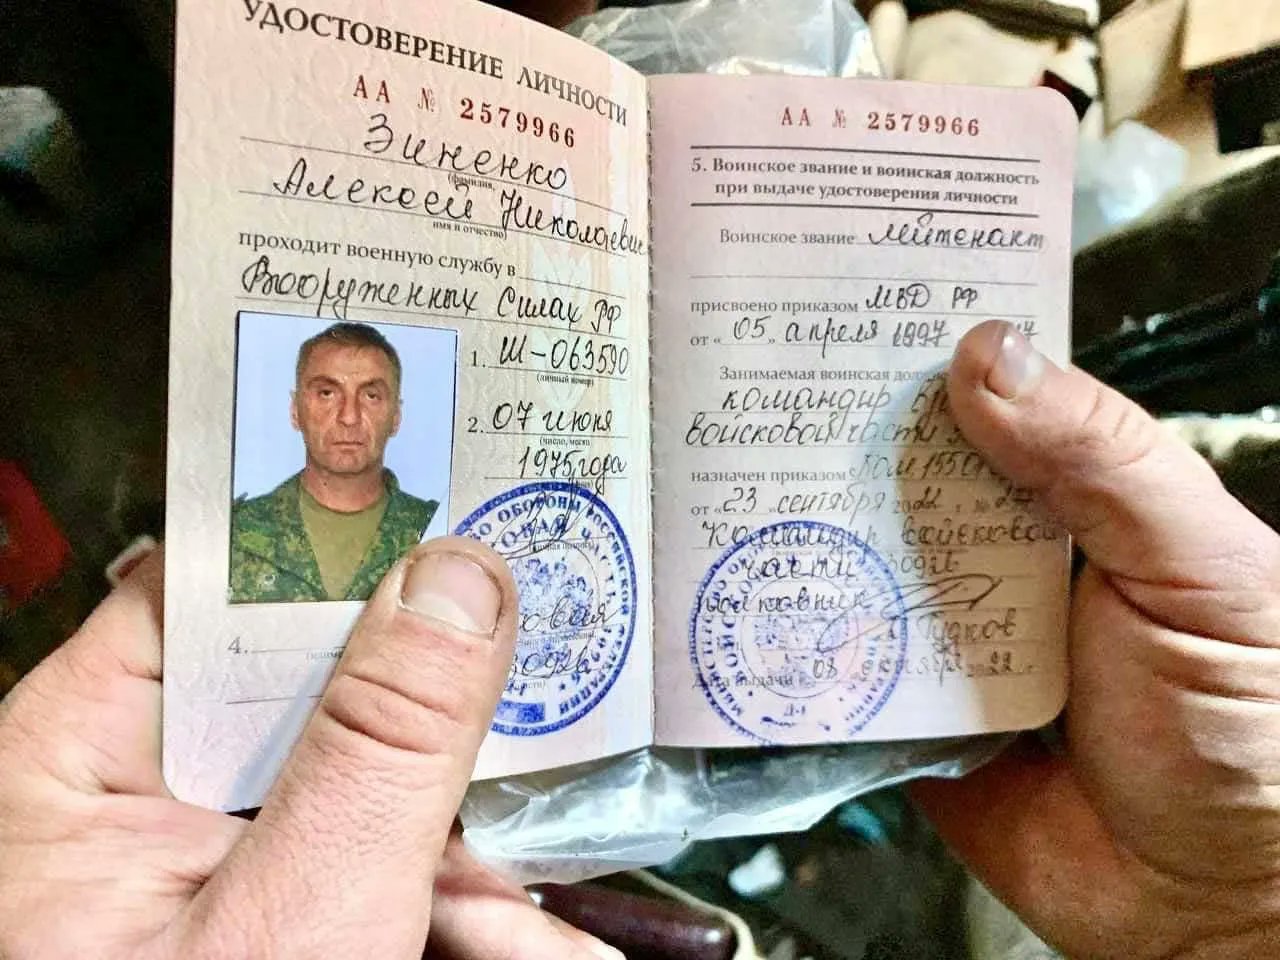 УДОСТОВЕРЕНИЕ ЛИЧНОСТИ
АА № 2579966
Зиненко
(фамилия,
Алексей Николаевич
имя и отчество)
проходит военную службу в
Вооруженных Силах РФ
1. Ш-063590
(личный номер)
2. 07 июня
(число, месяц
1975 года
4.
АА № 2579966
5. Воинское звание и воинская должность
при выдаче удостоверения личности
Воинское звание лейтенант
присвоено приказом МВД РФ
от «05» апреля 1997
Занимаемая воинская
командир
войсковой части
назначен приказом
от «23» сентября 2022 г. №
Командир войсковой
части 30926
полковник
Гудков
Дата выдачи «08» октября 2022 г.